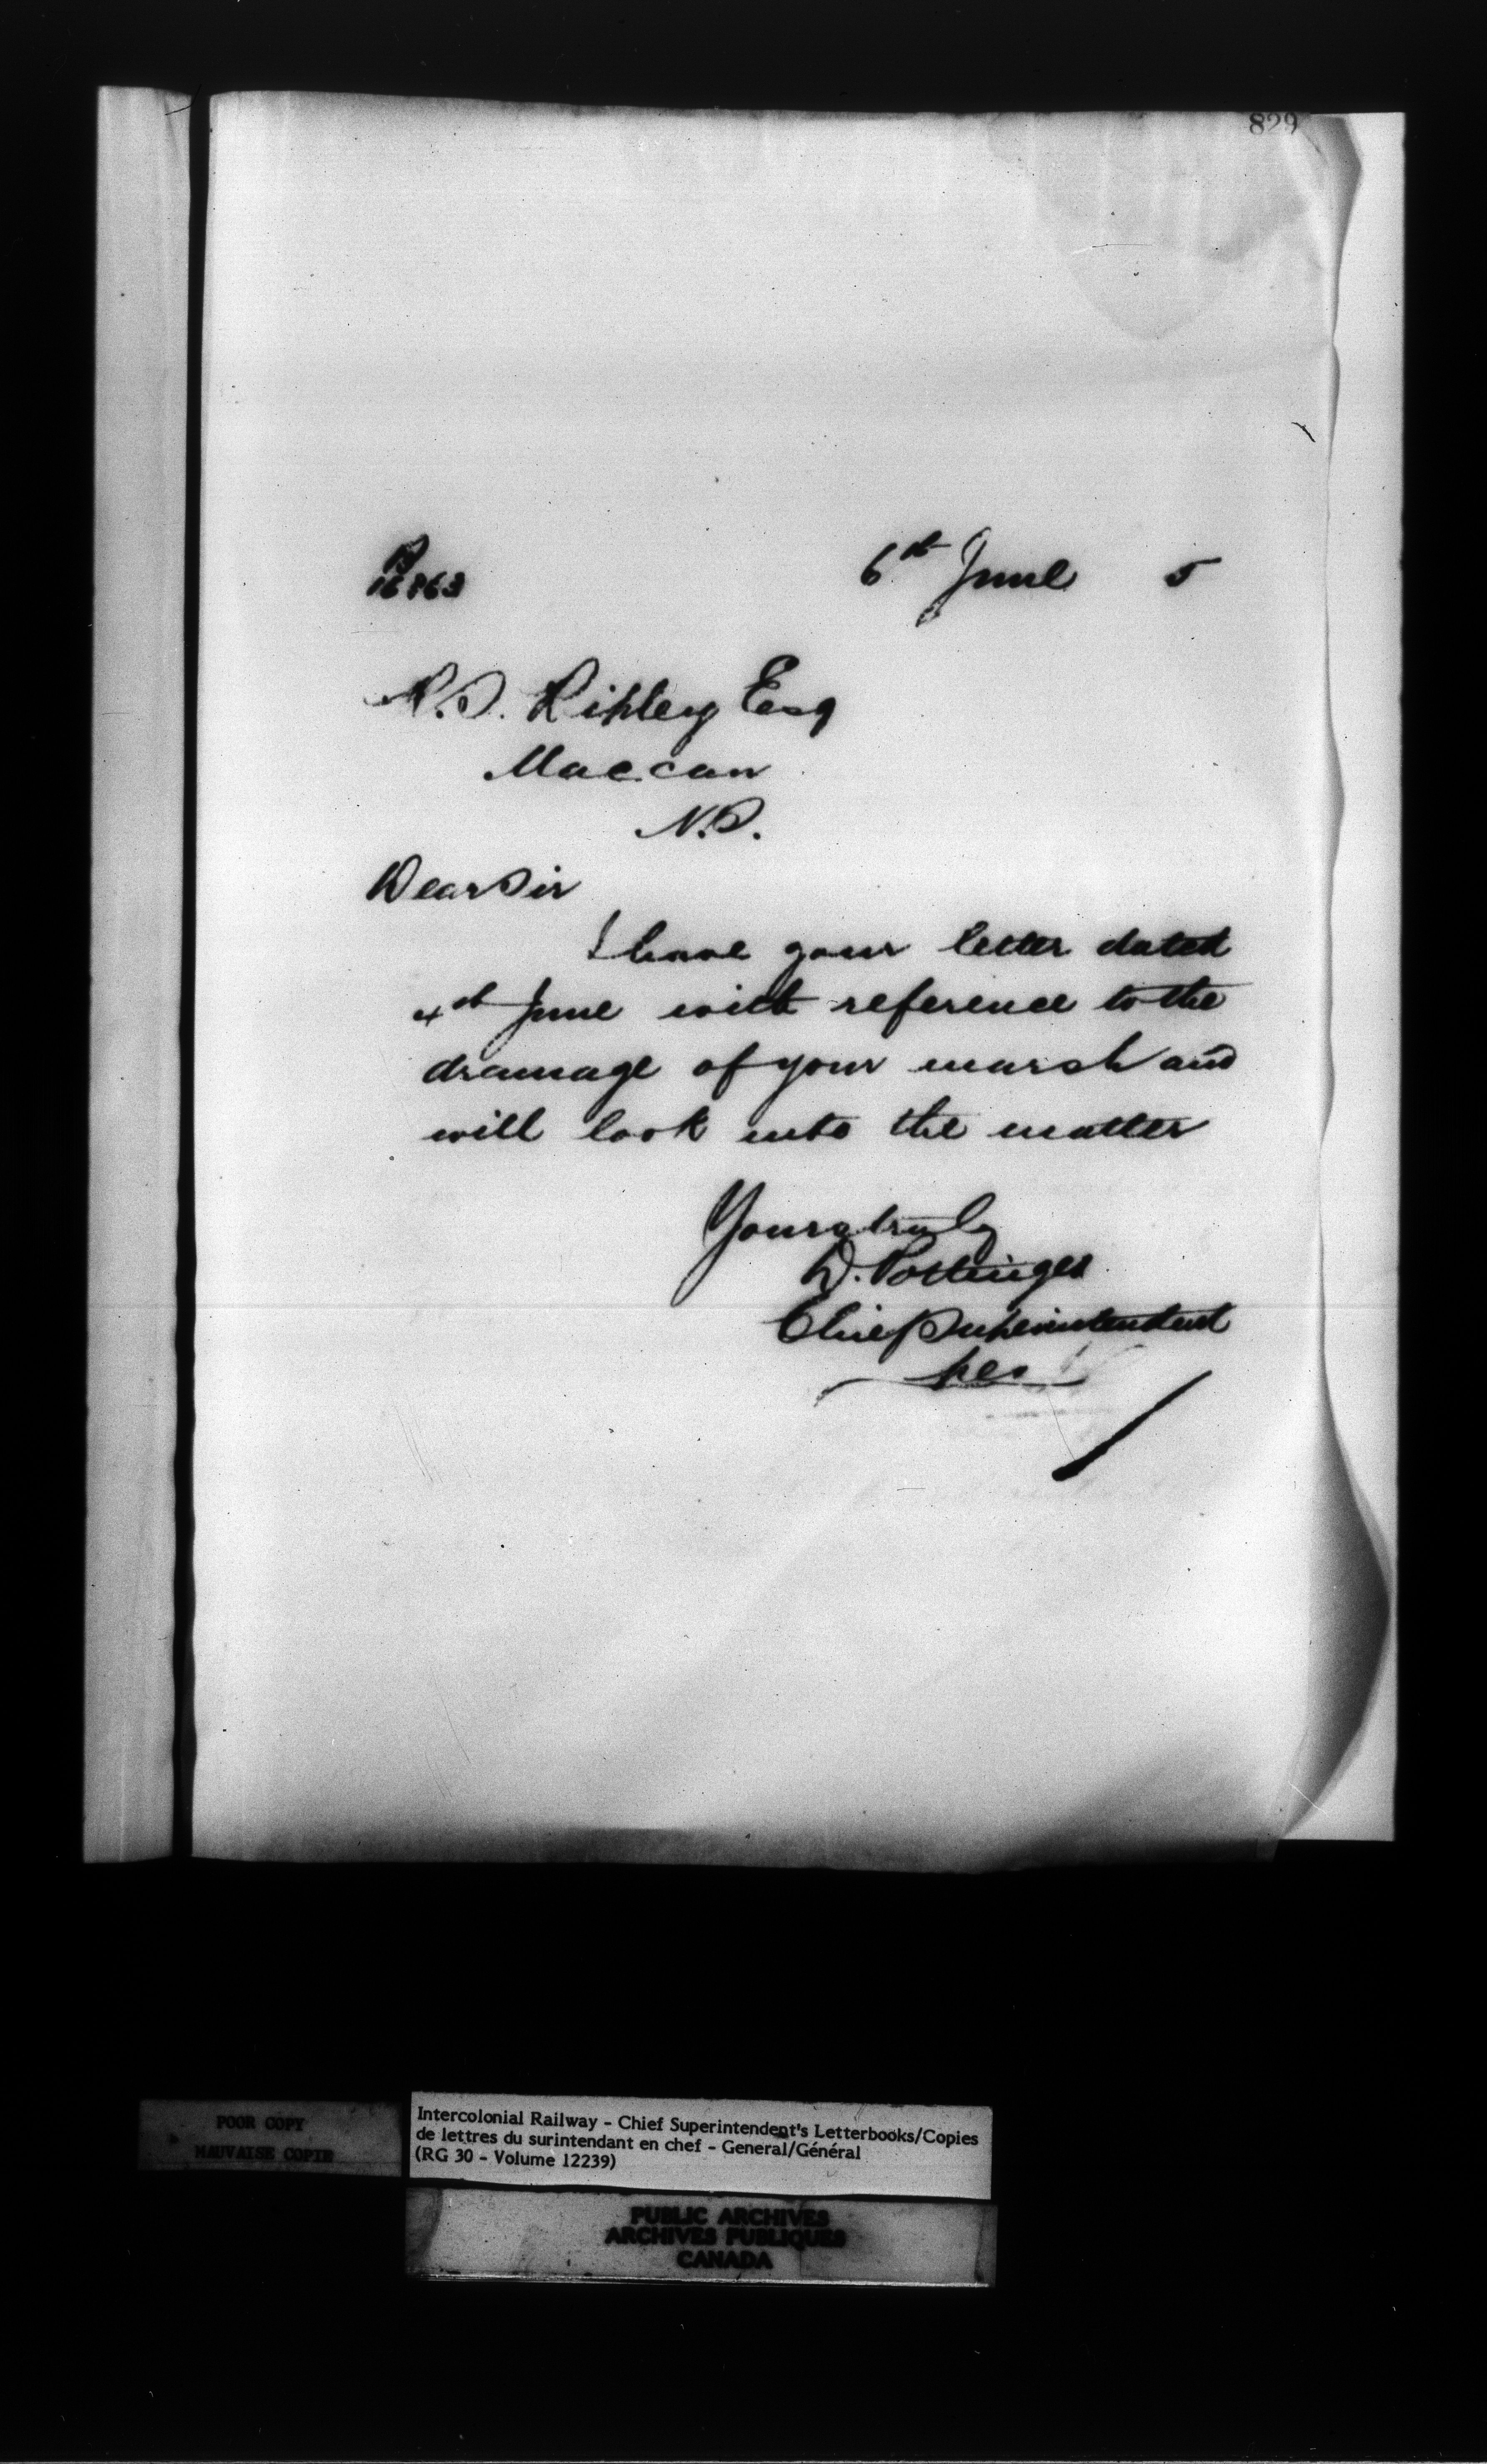 829
P
16863
6th June 5
R.S. Ripley Esq
Maccan
N.S.
Dear Sir
I have your letter dated
4th June with reference to the
drainage of your marsh and
will look into the matter
Yours truly
D. Pottinger
Chief Superintendent
POOR COPY
MAUVAISE COPIE
Intercolonial Railway - Chief Superintendent's Letterbooks/Copies
de lettres du surintendant en chef - General/Général
(RG 30 - Volume 12239)
PUBLIC ARCHIVES
ARCHIVES PUBLIQUES
CANADA